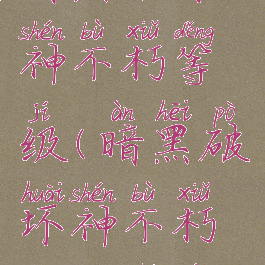 shén bù xiǔ děng
神不朽等
jí àn hēi pò
级(暗黑破
huài shén bù xiǔ
坏神不朽